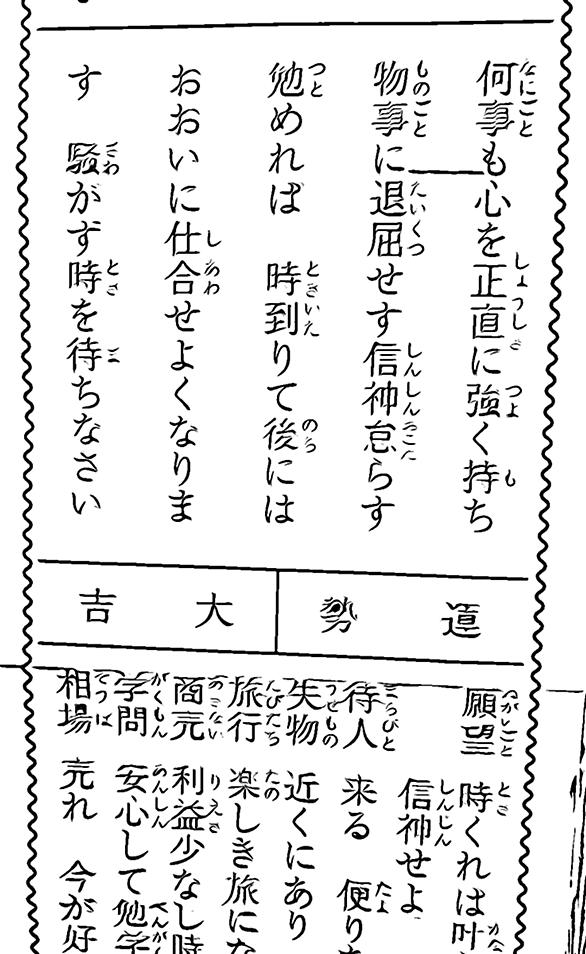 何事も心を正直に強く持ち
物事に退屈せす信神怠らす
勉めれば 時到りて後には
おおいに仕合せよくなりま
す 騒がず時を待ちなさい
運勢
大吉
願望 時くれは叶
信神せよ
待人 来る 便り
失物 近くにあり
旅行 楽しき旅にな
商売 利益少なし時
学問 安心して勉学
相場 売れ 今が好